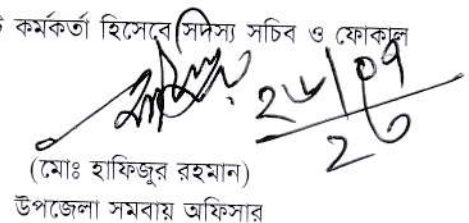 কর্মকর্তা হিসেবে সদস্য সচিব ও ফোকাল
২৬/০৭
২৩
(মোঃ হাফিজুর রহমান)
উপজেলা সমবায় অফিসার